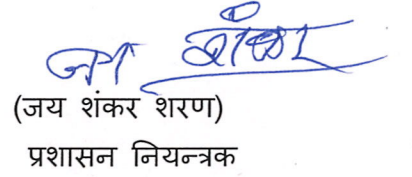 जय शंकर
(जय शंकर शरण)
प्रशासन नियन्त्रक